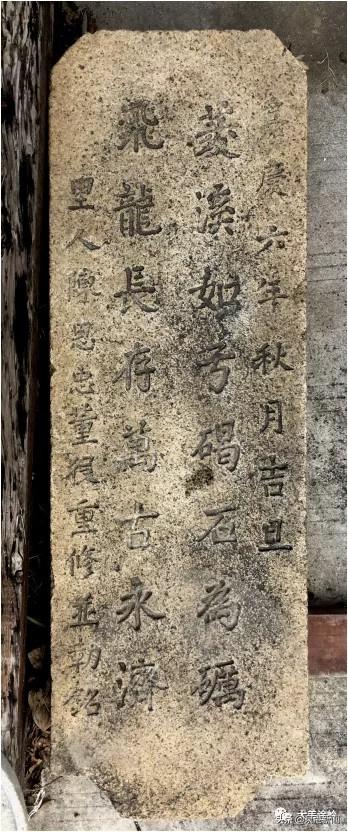 嘉慶六年秋月吉旦
菱溪如兮碣石為礪
飛龍長存萬古永濟
里人陳思忠董役重修並勒銘